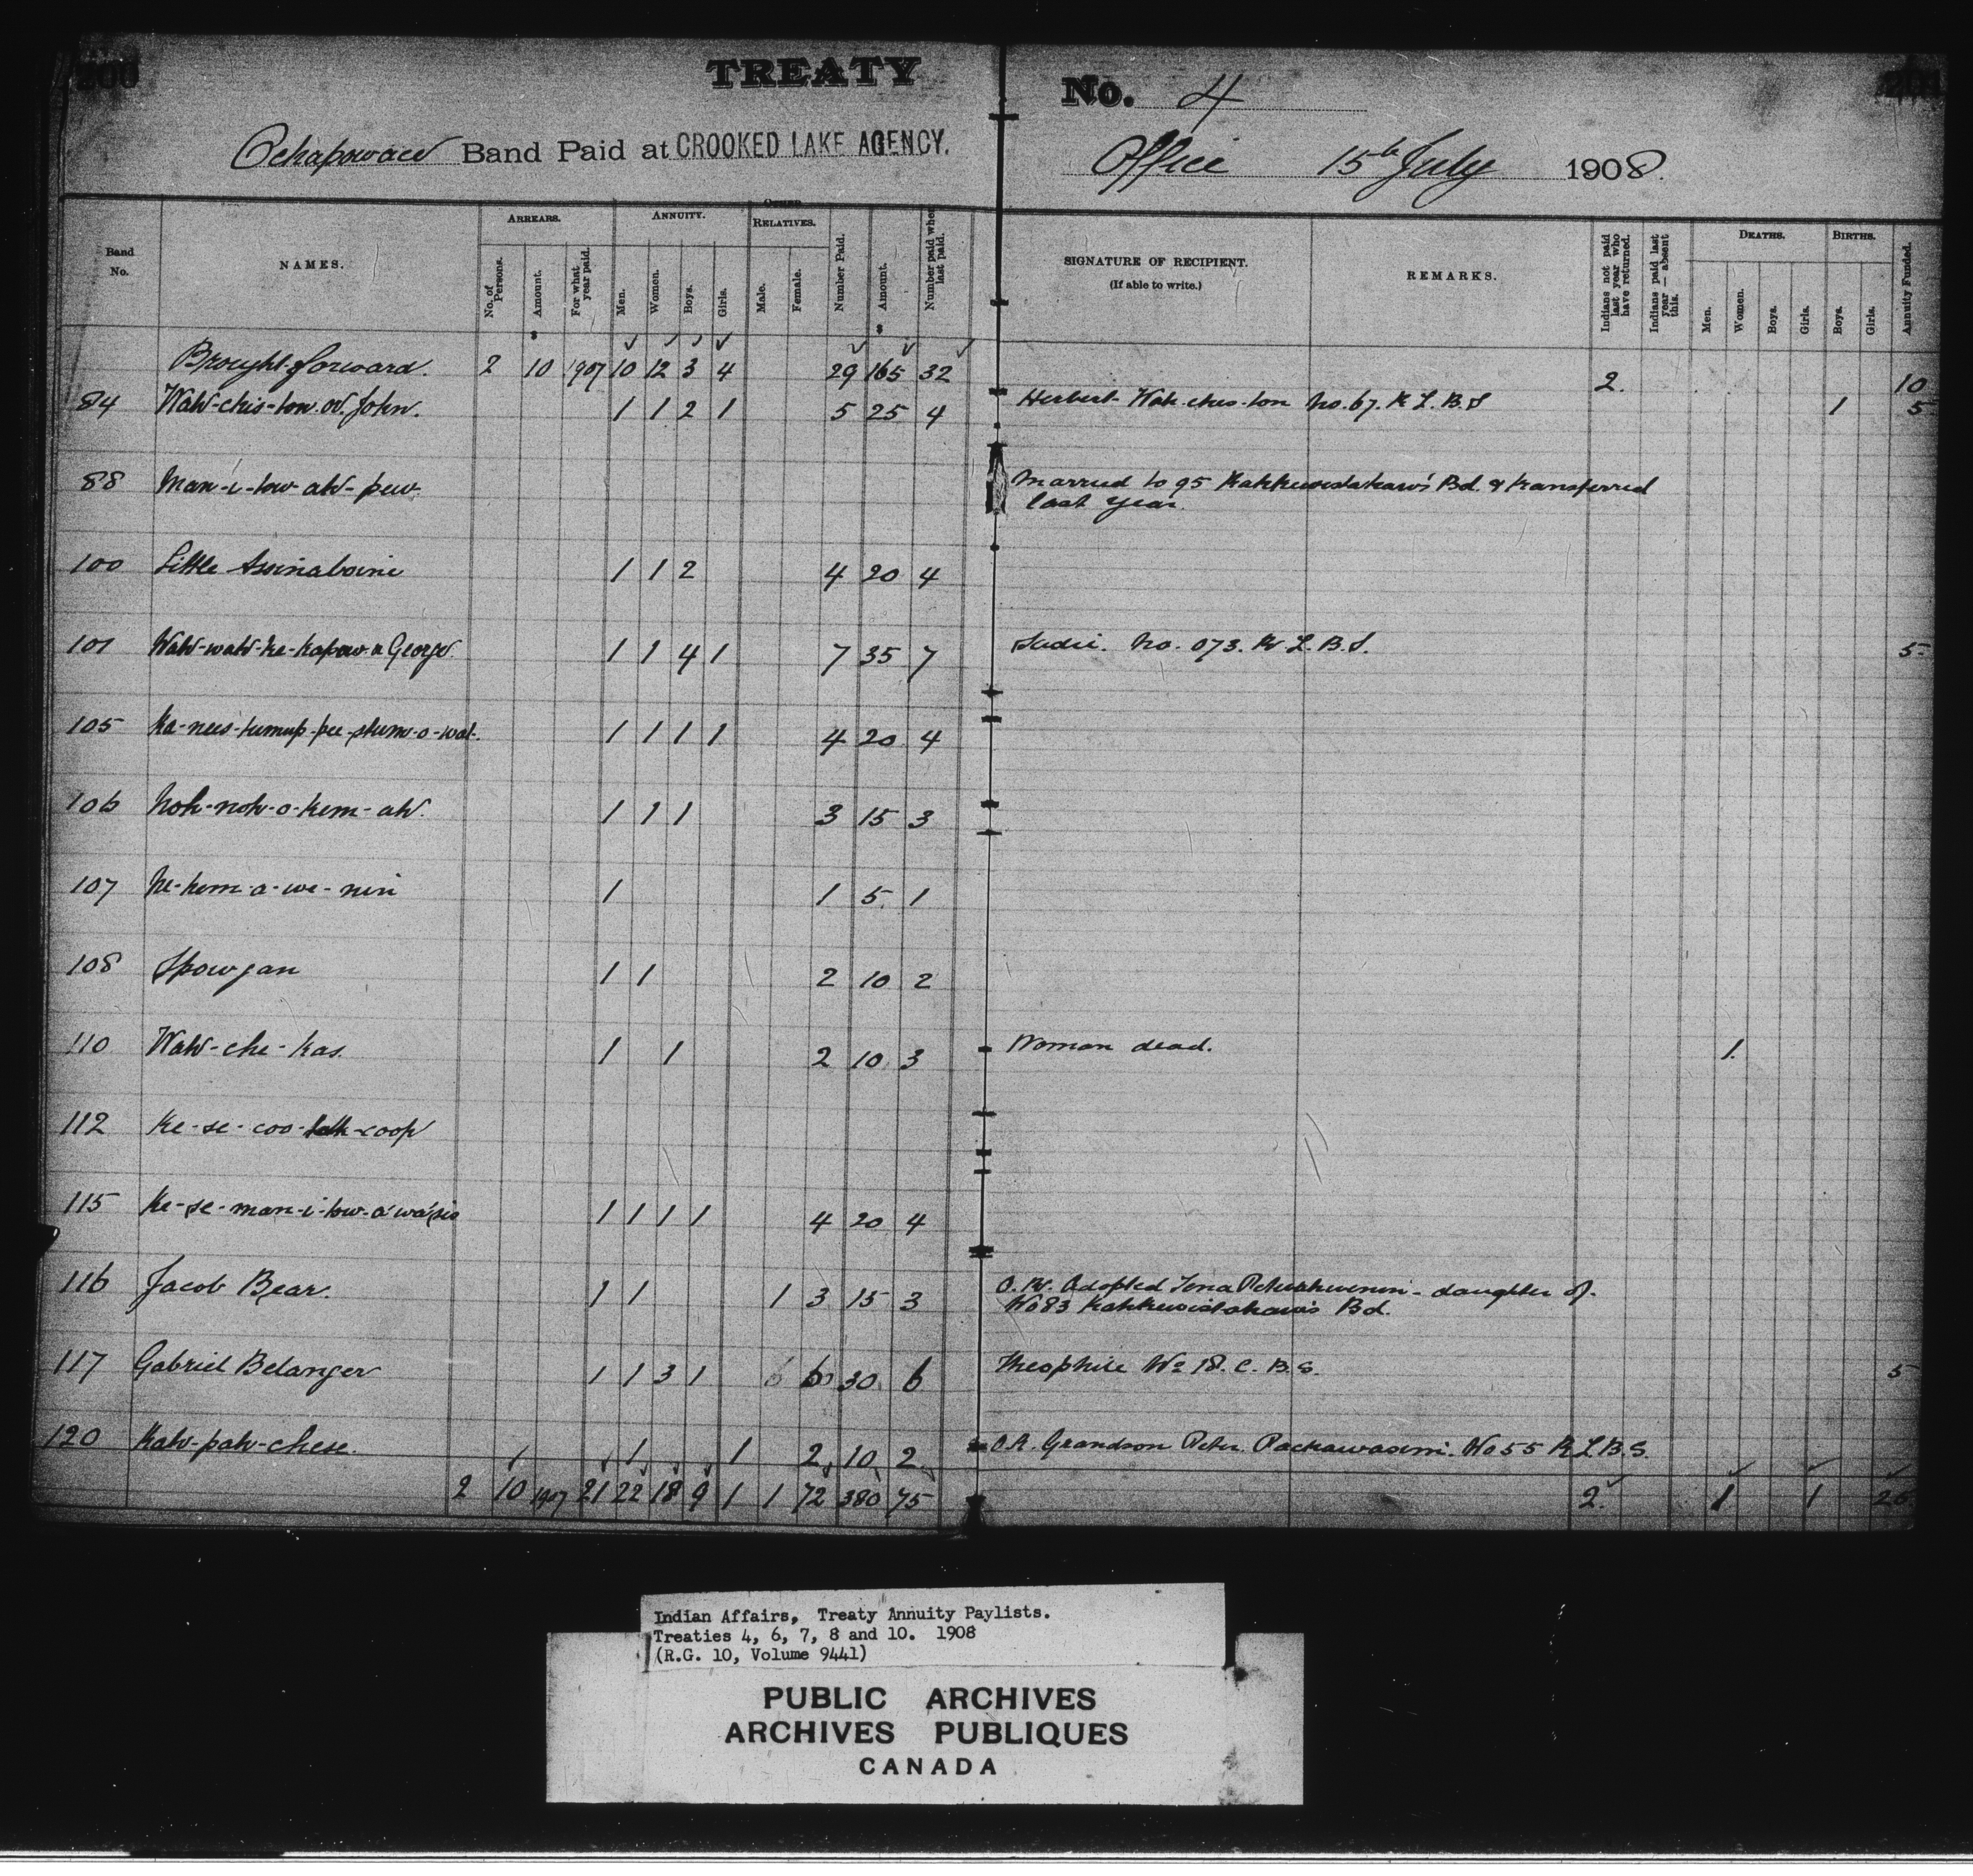 200
TREATY No. 4
Ochapowace Band Paid at CROOKED LAKE AGENCY. Office 15th July 1908.
Band No.
NAMES.
ARREARS.
No. of Persons.
Amount.
For what year paid.
ANNUITY.
Men.
Women.
Boys.
Girls.
OTHER RELATIVES.
Male.
Female.
Number Paid.
Amount.
Number paid when last paid.
SIGNATURE OF RECIPIENT.
(If able to write.)
REMARKS.
Indians not paid last year who have returned.
Indians paid last year — absent this.
DEATHS.
Men.
Women.
Boys.
Girls.
BIRTHS.
Boys.
Girls.
Annuity Funded.
$ $
Brought forward. 2 10 1907 10 12 3 4 29 165 32 2. 10
84 Wah-chis-tow.ow. John. 1 1 2 1 5 25 4 Herbert Wah-ches-ton No. 67. R L. B. S 1 5
88 Man-i-tow-ah-pew. Married to 95 Kahkewistahaw's Bd. & transferred
last year.
100 Little Assinaboine 1 1 2 4 20 4
101 Wah-wah-ke-kapow a George 1 1 4 1 7 35 7 Sadie. No. 073. R. L. B. S. 5
105 1 1 1 1 4 20 4
106 Noh-noh-o-kem-ah. 1 1 1 3 15 3
107 Ne-kem-a-we-nin 1 1 5 1
108 Spowjan 1 1 2 10 2
110 Wah-che-kas. 1 1 2 10 3 Woman dead. 1.
112 Ke-se-coo-
115 Ke-se-man-i-tow-a-wa-sis 1 1 1 1 4 20 4
116 Jacob Bear. 1 1 1 3 15 3 Adopted daughter of
No 83 Kahkewistahaw's Bd.
117 Gabriel Belanger 1 1 3 1 6 30 6 Theophile No 18. C. B. S. 5
120 Kah-pah-chese. 1 1 2 10 2 Grandson Peter No 55 R L B. S.
2 10 1907 21 22 18 9 1 1 72 380 75 2. 1 1 25
Indian Affairs, Treaty Annuity Paylists.
Treaties 4, 6, 7, 8 and 10. 1908
(R.G. 10, Volume 9441)
PUBLIC ARCHIVES
ARCHIVES PUBLIQUES
CANADA